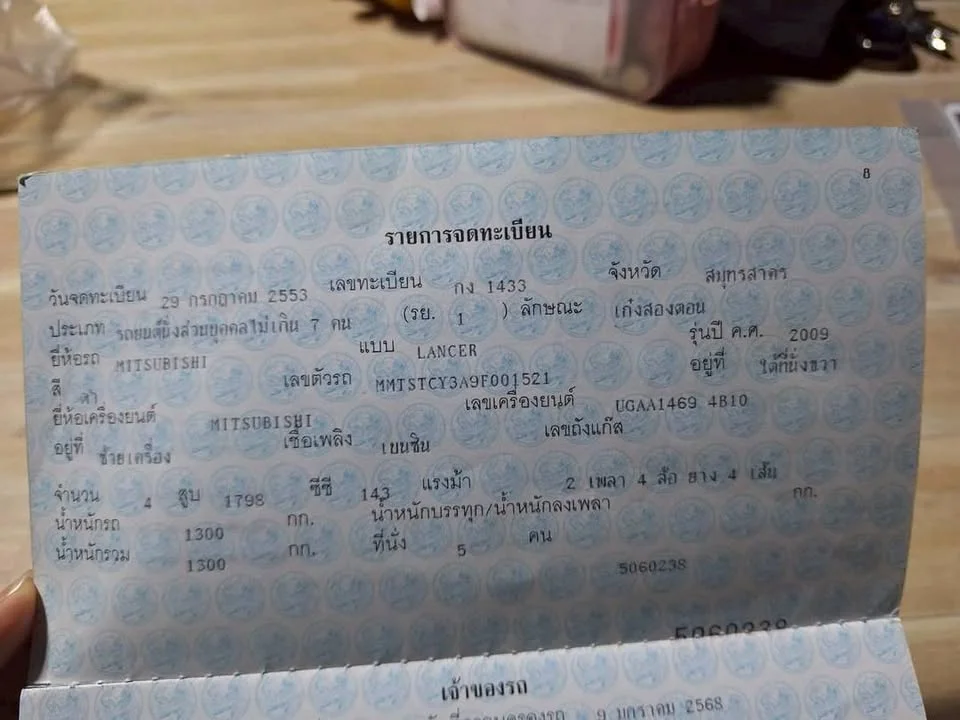 8
รายการจดทะเบียน
วันจดทะเบียน 29 กรกฎาคม 2553 เลขทะเบียน กง 1433 จังหวัด สมุทรสาคร
ประเภท รถยนต์นั่งส่วนบุคคลไม่เกิน 7 คน (รย. 1 ) ลักษณะ เก๋งสองตอน
ยี่ห้อรถ MITSUBISHI แบบ LANCER รุ่นปี ค.ศ. 2009
สี ดำ เลขตัวรถ MMTSTCY3A9F001521 อยู่ที่ ใต้ที่นั่งขวา
ยี่ห้อเครื่องยนต์ MITSUBISHI เลขเครื่องยนต์ UGAA1469 4B10
อยู่ที่ ซ้ายเครื่อง เชื้อเพลิง เบนซิน เลขถังแก๊ส
จำนวน 4 สูบ 1798 ซีซี 143 แรงม้า 2 เพลา 4 ล้อ ยาง 4 เส้น
น้ำหนักรถ 1300 กก. น้ำหนักบรรทุก/น้ำหนักลงเพลา กก.
น้ำหนักรวม 1300 กก. ที่นั่ง 5 คน
5060238
5060238
เจ้าของรถ
9 มกราคม 2568